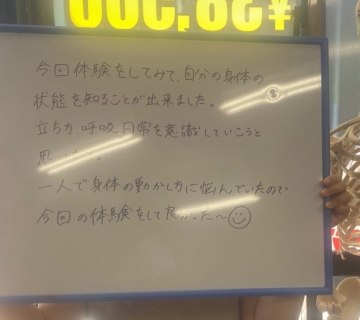 ¥38,000
今回体験をしてみて、自分の身体の
状態を知ることが出来ました。
立ち方、呼吸、日常を意識していこうと
思
一人で身体の動かし方に悩んでいたので
今回の体験をして た〜